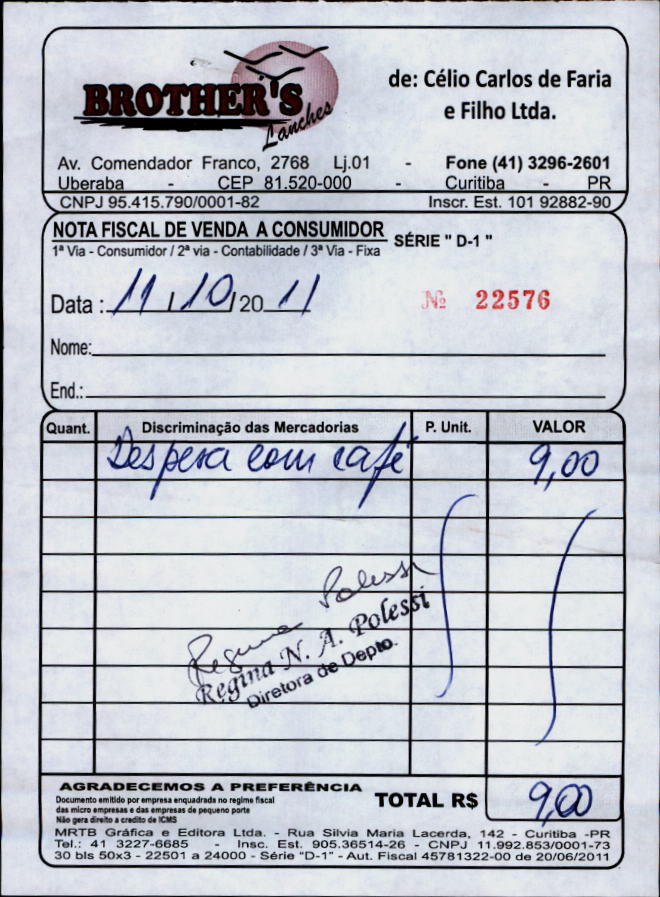 BROTHER'S
Lanches
de: Célio Carlos de Faria
e Filho Ltda.
Av. Comendador Franco, 2768 Lj.01 - Fone (41) 3296-2601
Uberaba - CEP 81.520-000 - Curitiba - PR
CNPJ 95.415.790/0001-82 Inscr. Est. 101 92882-90
NOTA FISCAL DE VENDA A CONSUMIDOR SÉRIE " D-1 "
1ª Via - Consumidor / 2ª via - Contabilidade / 3ª Via - Fixa
Data : 11 / 10 / 20 11 Nº 22576
Nome:
End.:
Quant. Discriminação das Mercadorias P. Unit. VALOR
Despesa com café 9,00
Regina Polessi
Regina N. A. Polessi
Diretora de Depto.
AGRADECEMOS A PREFERÊNCIA
Documento emitido por empresa enquadrada no regime fiscal
das micro empresas e das empresas de pequeno porte
Não gera direito a credito de ICMS
TOTAL R$ 9,00
MRTB Gráfica e Editora Ltda. - Rua Silvia Maria Lacerda, 142 - Curitiba -PR
Tel.: 41 3227-6685 - Insc. Est. 905.36514-26 - CNPJ 11.992.853/0001-73
30 bls 50x3 - 22501 a 24000 - Série "D-1" - Aut. Fiscal 45781322-00 de 20/06/2011